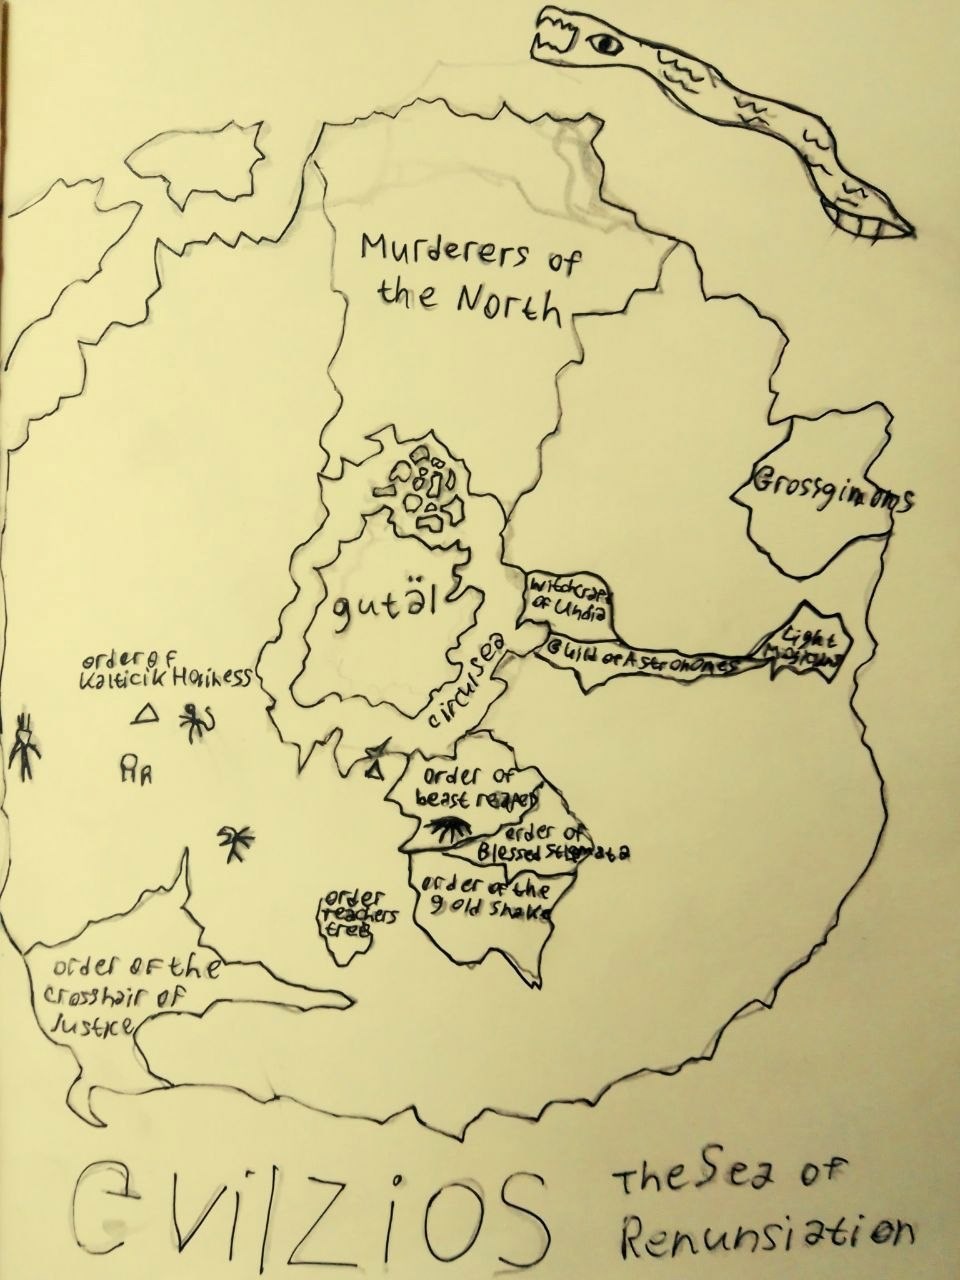 Murderers of
the North
Grossginoms
gutäl
witchcraft
of Undia
Guild of Astronomes
Light
circulsea
order of
Kalticik Horiness
order of
beast reaped
order of
Blessed Stigmata
order of the
gold snake
order
reachers
tree
order of the
crosshair of
Justice
EvilZiOS
The Sea of
Renunsiation